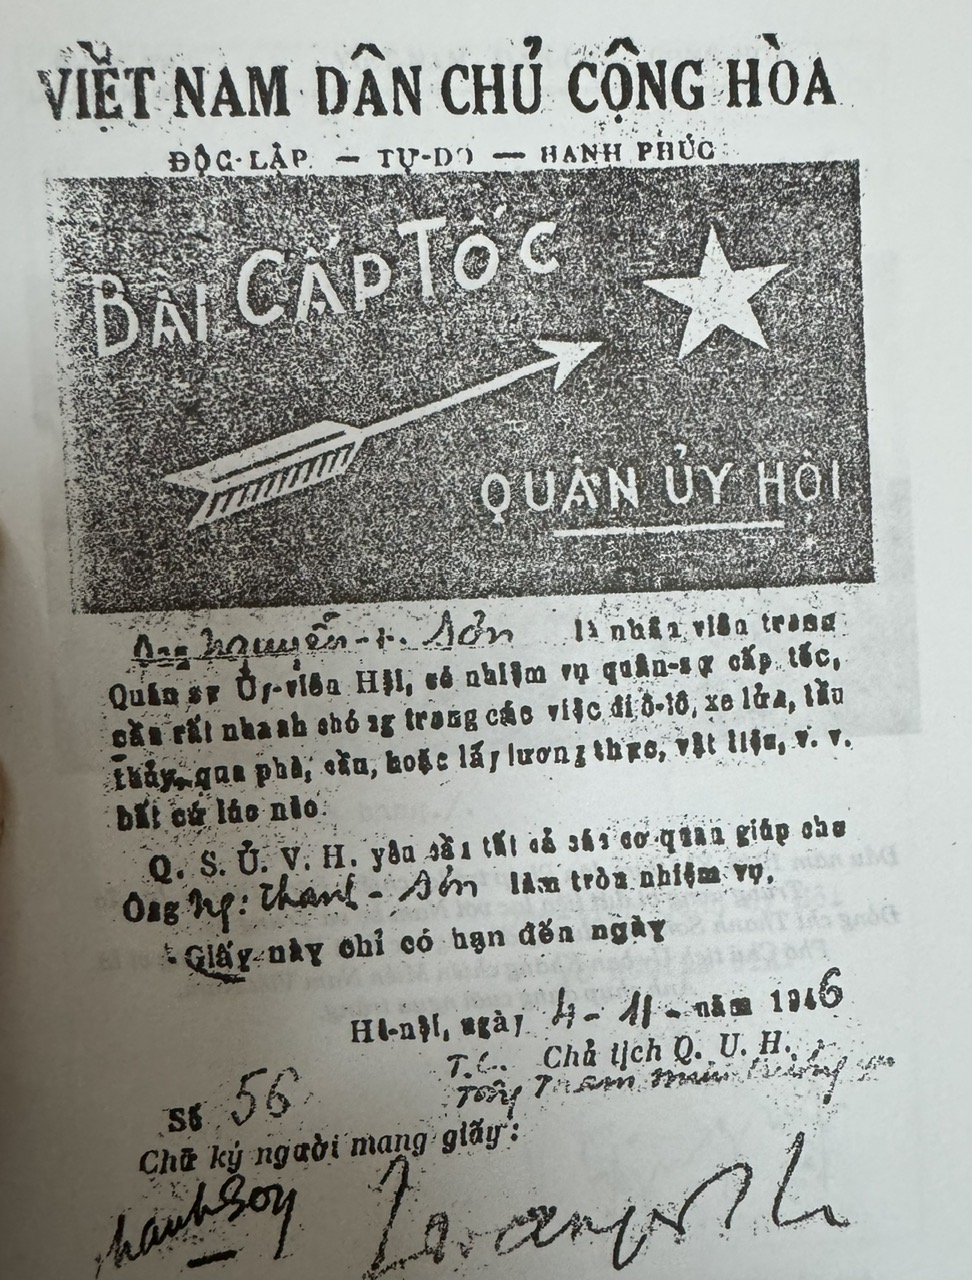 VIỆT NAM DÂN CHỦ CỘNG HÒA
ĐỘC-LẬP — TỰ-DO — HẠNH PHÚC
BÀI CẤP TỐC
QUÂN ỦY HỘI
Ông Nguyễn-t. Sơn là nhân viên trong
Quân sự Ủy-viên Hội, có nhiệm vụ quân-sự cấp tốc,
cần rất nhanh chóng trong các việc đi ô-tô, xe lửa, tầu
thủy, qua phà, cầu, hoặc lấy lương thực, vật liệu, v. v.
bất cứ lúc nào.
Q. S. Ủ. V. H. yêu cầu tất cả các cơ quan giúp cho
Ông Ng: Thanh-Sơn làm tròn nhiệm vụ.
Giấy này chỉ có hạn đến ngày
Hà-nội, ngày 4-11-năm 1946
T.L. Chủ tịch Q. U. H.
Tổng Tham mưu trưởng
Số 56
Chữ ký người mang giấy:
ThanhSon